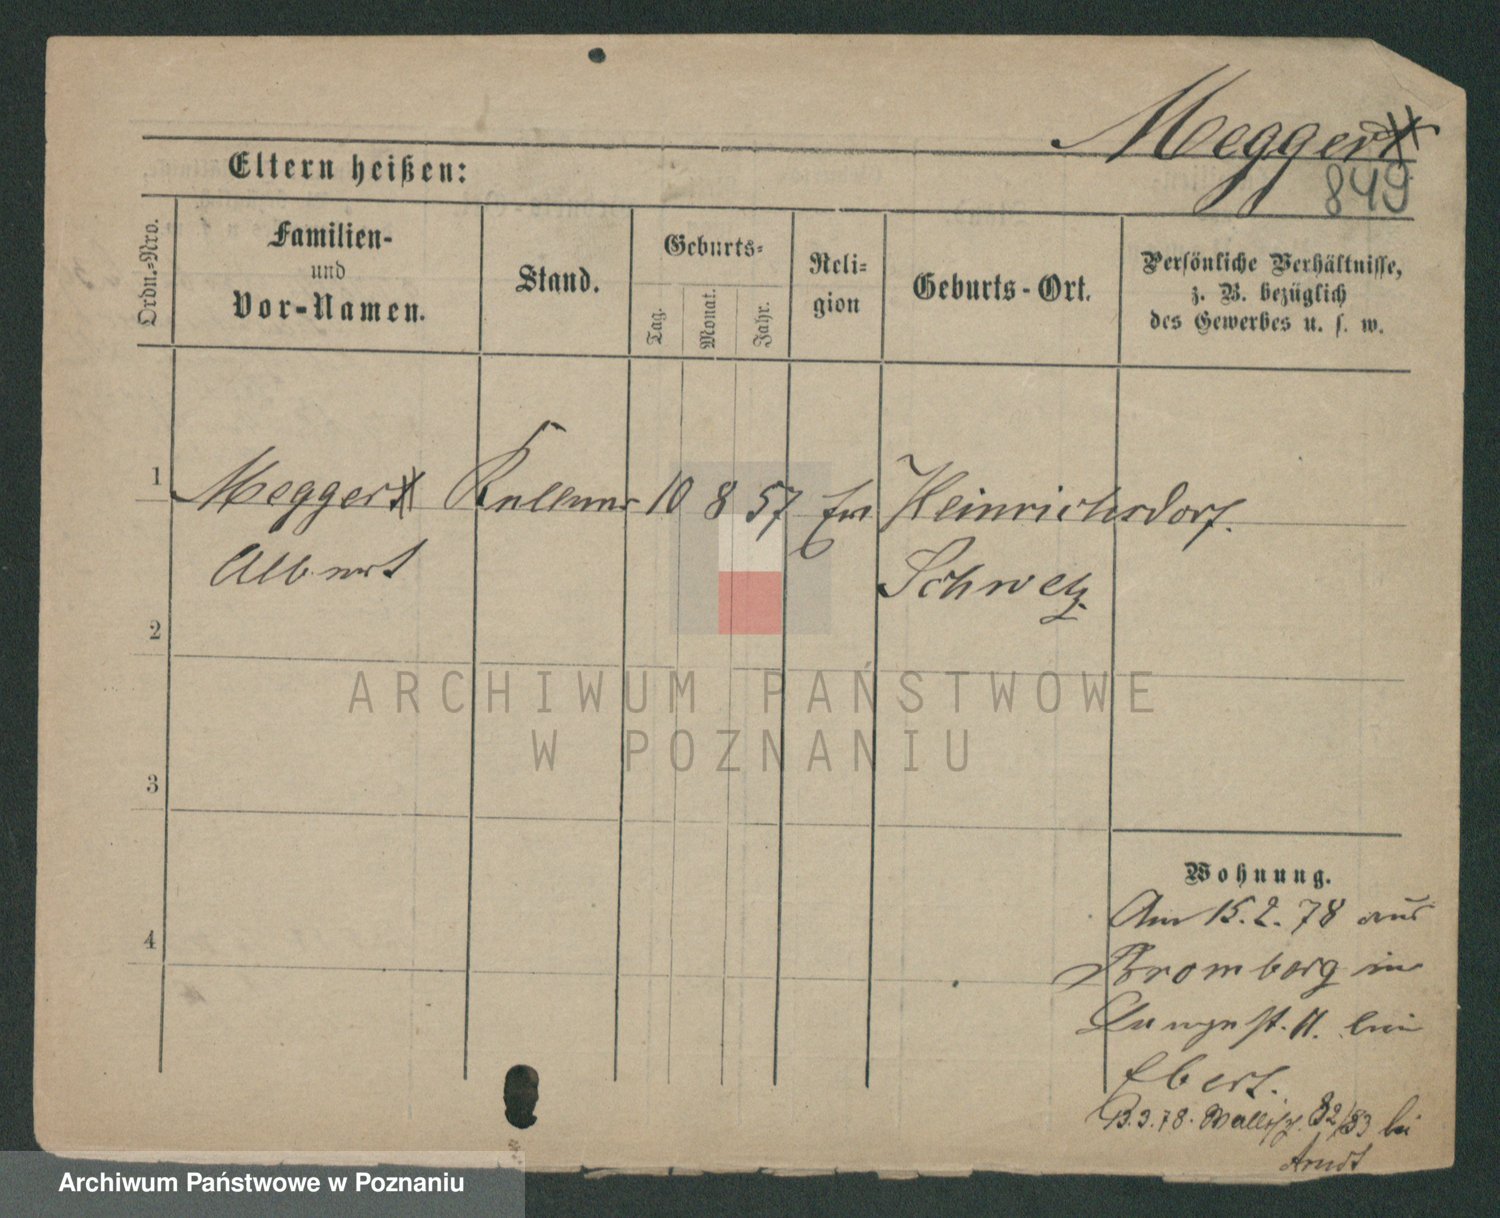 Megger
849
Eltern heißen:
Ordn.=Nro.
Familien-
und
Vor-Namen.
Stand.
Geburts=
Tag.
Monat.
Jahr.
Reli=
gion
Geburts-Ort.
Persönliche Verhältnisse,
z. B. bezüglich
des Gewerbes u. s. w.
1
Megger Kellner 10 8 57 Ev Heinrichsdorf.
Albert
Schwetz
2
3
4
Wohnung.
Am 15. 2. 78 aus
Bromberg in
11. bei
Ebert.
13.3.78. Wallisch. 82/83 bei
Arndt
ARCHIWUM PAŃSTWOWE
W POZNANIU
Archiwum Państwowe w Poznaniu